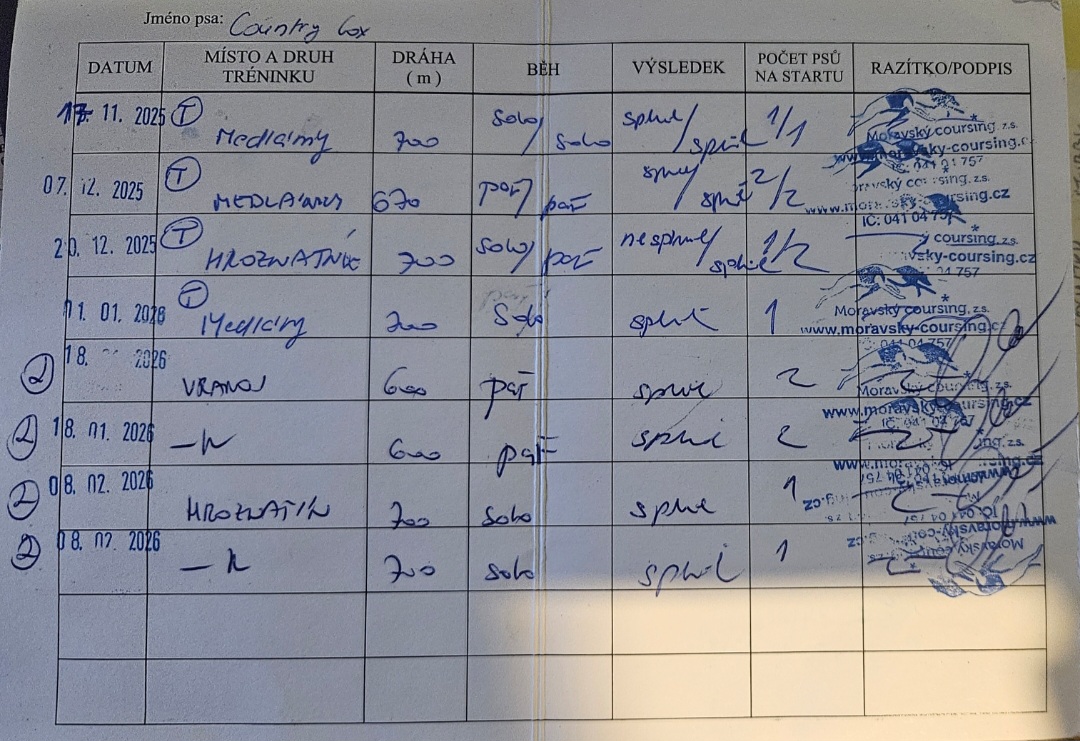 Jméno psa: Country Cox
DATUM MÍSTO A DRUH TRÉNINKU DRÁHA (m) BĚH VÝSLEDEK POČET PSŮ NA STARTU RAZÍTKO/PODPIS
17. 11. 2025 T Medlánky 700 solo/solo splnil/splnil 1/1
Moravský coursing, z.s.
07. 12. 2025 T MEDLÁNKY 670 pář/pář splnil/splnil 2/2
www.moravsky-coursing.cz
IČ: 041 04 757
20. 12. 2025 T HROZNATÍN 700 solo/pář nesplnil/splnil 1/2
coursing, z.s.
vsky-coursing.cz
04 757
01. 01. 2026 T Medlánky 700 Solo splnil 1
Moravský coursing, z.s.
www.moravsky-coursing.cz
IČ: 041 04 757
2 18. 2026 VRANOV 600 pář splnil 2
Moravský coursing, z.s.
www.moravsky-coursing.cz
2 18. 01. 2026 600 pář splnil 2
2 08. 02. 2026 HROZNATÍN 700 solo splnil 1
2 08. 02. 2026 700 solo splnil 1
www.moravsky-coursing.cz
Moravský coursing, z.s.